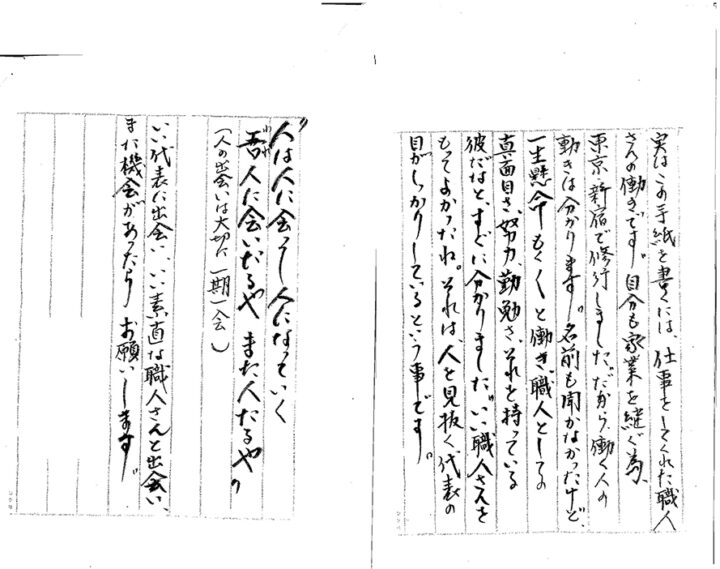 実はこの手紙を書くには、仕事をしてくれた職人
さんの働きです。自分も家業を継ぐ為、
東京新宿で修行しました。だから、働く人の
動きは分かります。名前も聞かなかったけど、
一生懸命もくもくと働き、職人としての
真面目さ、努力、勤勉さ、それを持っている
彼だなと、すぐに分かりました。いい職人さんを
もってよかったね。それは、人を見抜く代表の
目がしっかりしているという事です。
〝人は人に会って人になっていく
吾人に会いたるや また人たるや〟
(人の出会いは大切に 一期一会)
いい代表に出会い、いい素直な職人さんと出会い、
また機会があったら お願いします。